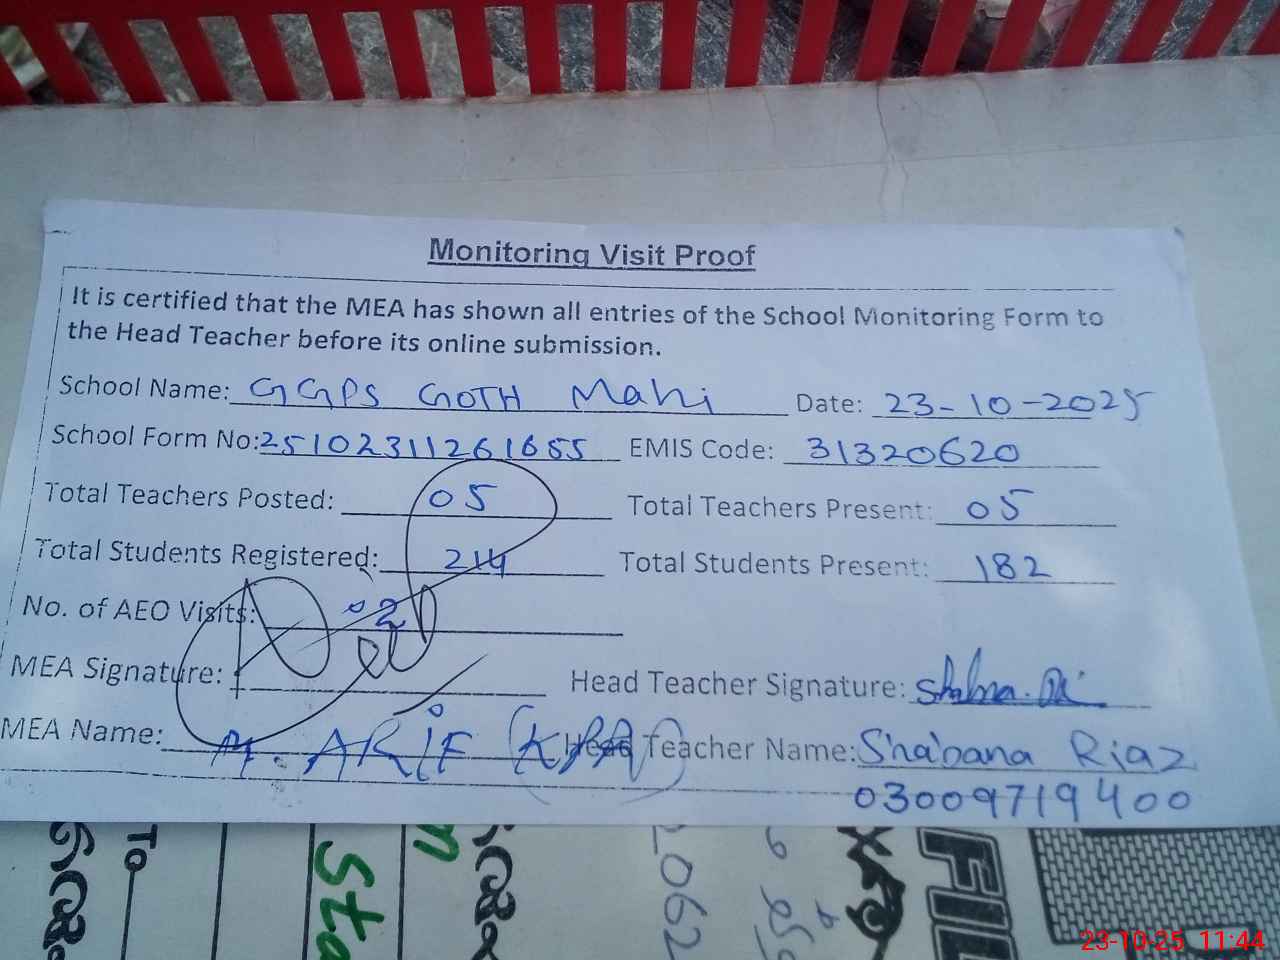 Monitoring Visit Proof
It is certified that the MEA has shown all entries of the School Monitoring Form to
the Head Teacher before its online submission.
School Name: GGPS GOTH Mahi Date: 23-10-2025
School Form No: 25102311261655 EMIS Code: 31320620
Total Teachers Posted: 05 Total Teachers Present: 05
Total Students Registered: 214 Total Students Present: 182
No. of AEO Visits: 02
MEA Signature: Head Teacher Signature:
MEA Name: M. ARiF Head Teacher Name: Shabana Riaz
03009719400
To
Sta
2062
FIL
23-10-25 11:44